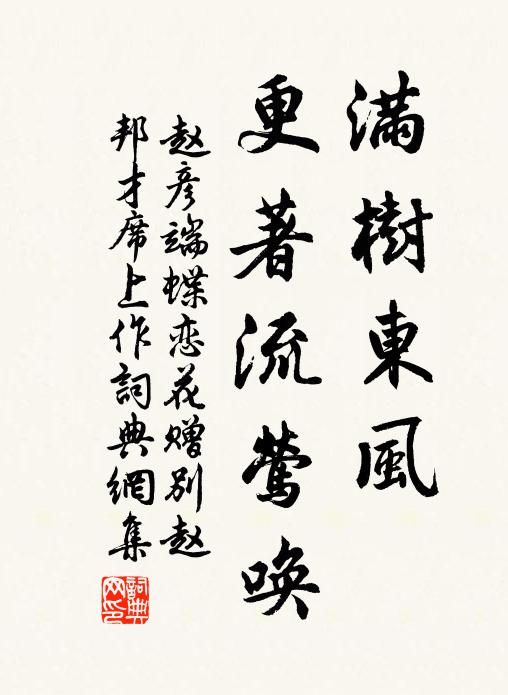 滿樹東風
更著流鶯喚
赵彦端蝶恋花赠别赵
邦才席上作詞典網集
詞典
网印